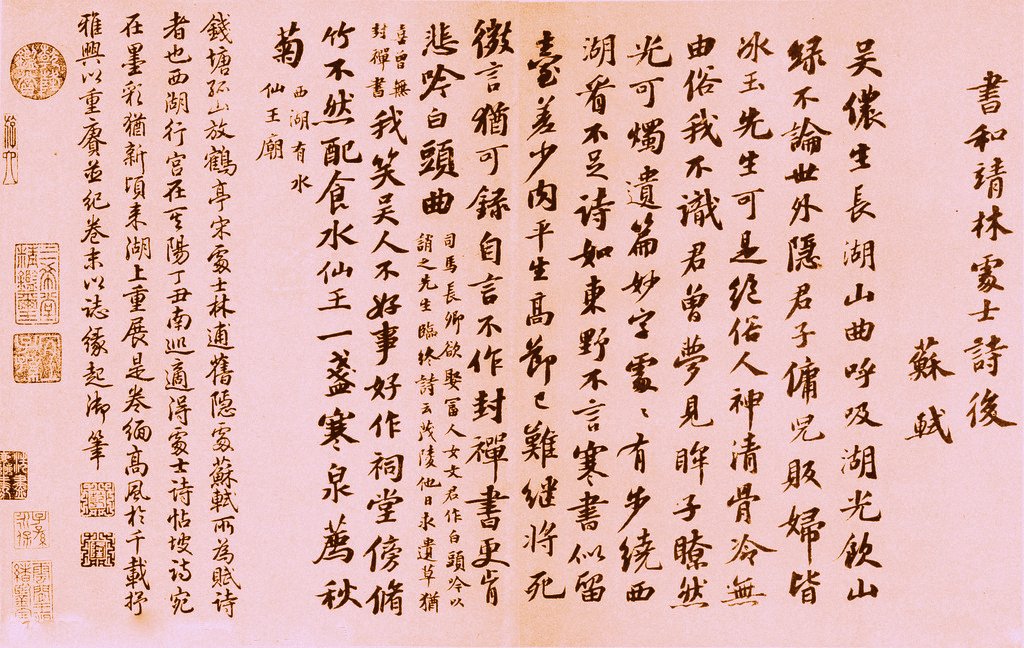 書和靖林處士詩後
蘇軾
吳儂生長湖山曲呼吸湖光飲山
綠不論世外隱君子傭兒販婦皆
冰玉先生可是絕俗人神清骨冷無
由俗我不識君曾夢見眸子瞭然
光可燭遺篇妙字處〻有步繞西
湖看不足詩如東野不言寒書似留
臺差少肉平生高節已難繼將死
微言猶可錄自言不作封禪書更肯
悲吟白頭曲
司馬長卿欲娶富人女文君作白頭吟以
誚之先生臨終詩云茂陵他日求遺草猶
喜曾無
封禪書
我笑吳人不好事好作祠堂傍脩
竹不然配食水仙王一盞寒泉薦秋
菊
西湖有水
仙王廟
錢塘孤山放鶴亭宋處士林逋舊隱處蘇軾所為賦詩
者也西湖行宮在其陽丁丑南巡適得處士詩帖坡詩宛
在墨彩猶新頃來湖上重展是卷緬高風於千載抒
雅興以重賡並紀卷末以誌緣起御筆
三希堂
精鑑璽